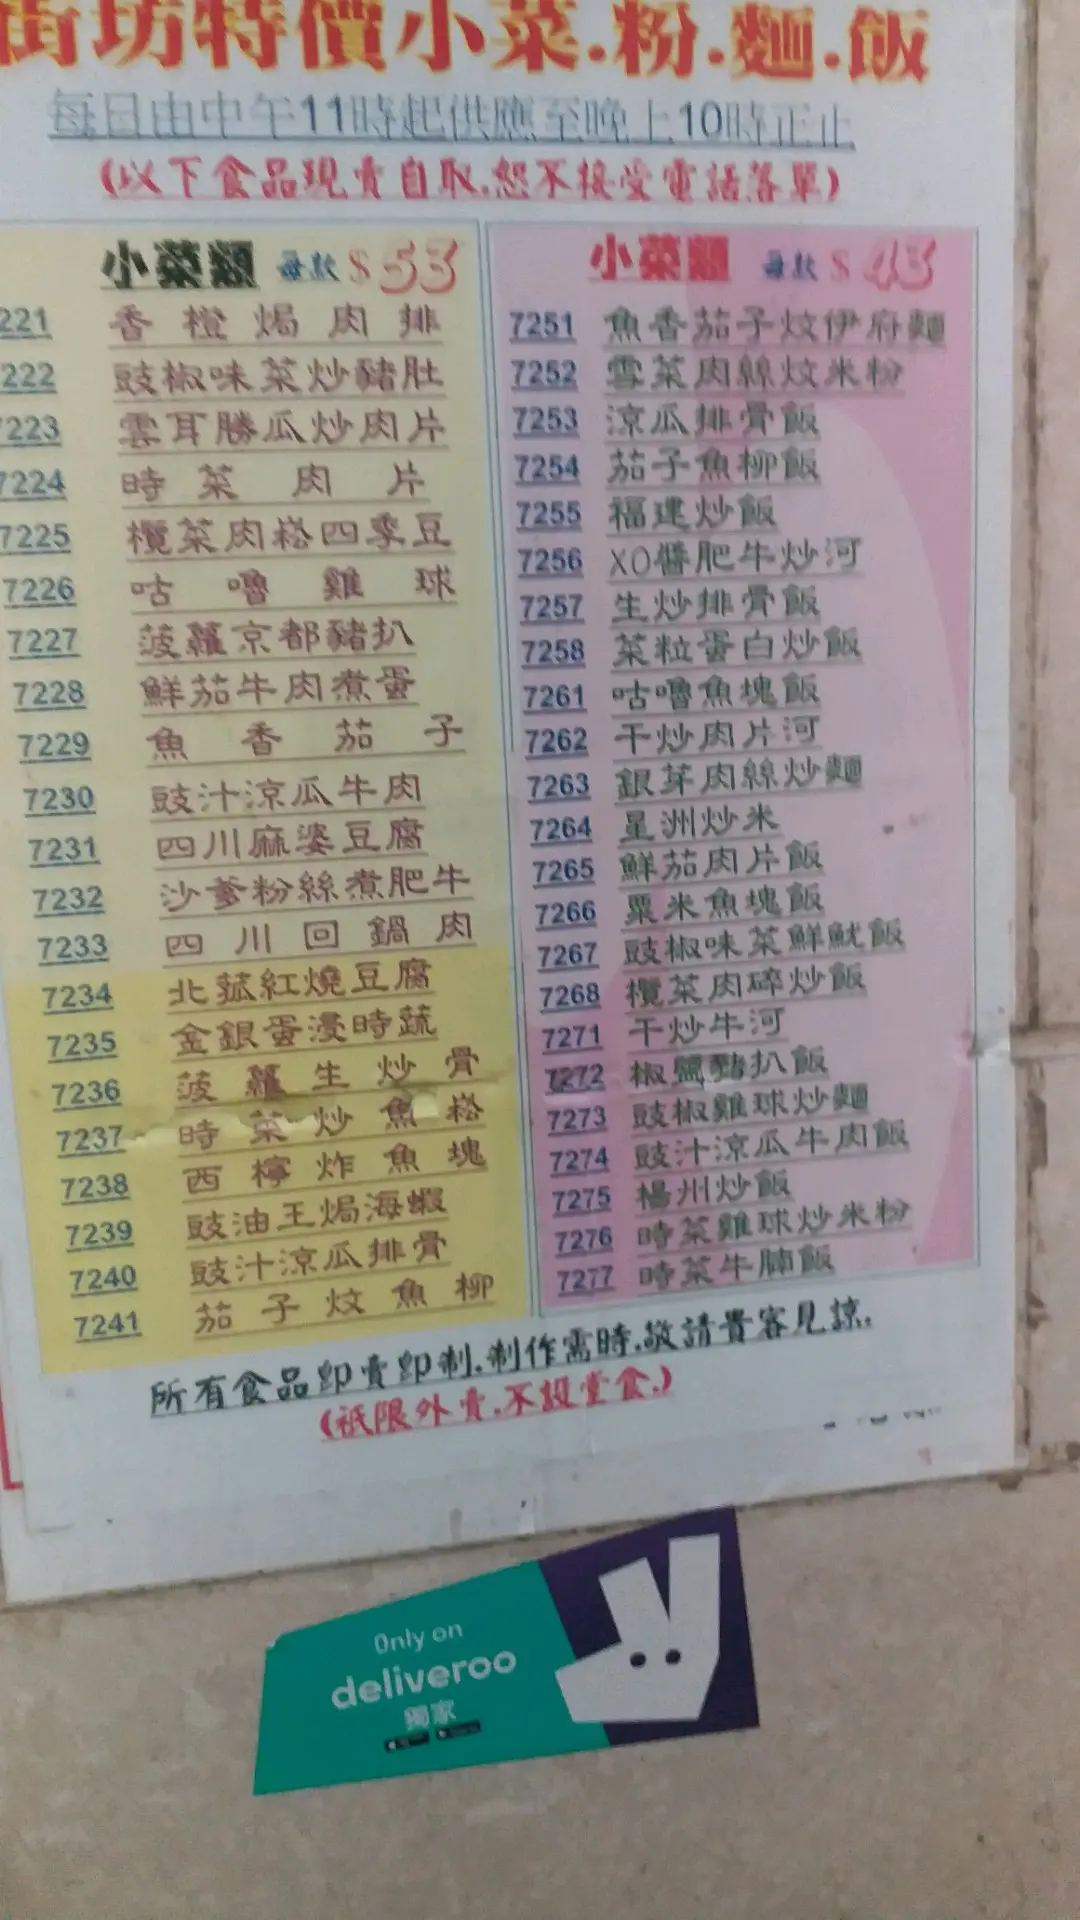 街坊特價小菜.粉.麵.飯
每日由中午11時起供應至晚上10時正止
(以下食品現賣自取.恕不接受電話落單)
小菜類 每款 $53
221 香橙焗肉排
222 豉椒味菜炒豬肚
7223 雲耳勝瓜炒肉片
7224 時菜肉片
7225 欖菜肉崧四季豆
7226 咕嚕雞球
7227 菠蘿京都豬扒
7228 鮮茄牛肉煮蛋
7229 魚香茄子
7230 豉汁涼瓜牛肉
7231 四川麻婆豆腐
7232 沙爹粉絲煮肥牛
7233 四川回鍋肉
7234 北菰紅燒豆腐
7235 金銀蛋浸時蔬
7236 菠蘿生炒骨
7237 時菜炒魚崧
7238 西檸炸魚塊
7239 豉油王焗海蝦
7240 豉汁涼瓜排骨
7241 茄子炆魚柳
小菜類 每款 $43
7251 魚香茄子炆伊府麵
7252 雪菜肉絲炆米粉
7253 涼瓜排骨飯
7254 茄子魚柳飯
7255 福建炒飯
7256 XO醬肥牛炒河
7257 生炒排骨飯
7258 菜粒蛋白炒飯
7261 咕嚕魚塊飯
7262 干炒肉片河
7263 銀芽肉絲炒麵
7264 星洲炒米
7265 鮮茄肉片飯
7266 粟米魚塊飯
7267 豉椒味菜鮮魷飯
7268 欖菜肉碎炒飯
7271 干炒牛河
7272 椒鹽豬扒飯
7273 豉椒雞球炒麵
7274 豉汁涼瓜牛肉飯
7275 楊州炒飯
7276 時菜雞球炒米粉
7277 時菜牛腩飯
所有食品即賣即制.制作需時.敬請貴客見諒.
(祗限外賣.不設堂食.)
Only on
deliveroo
獨家